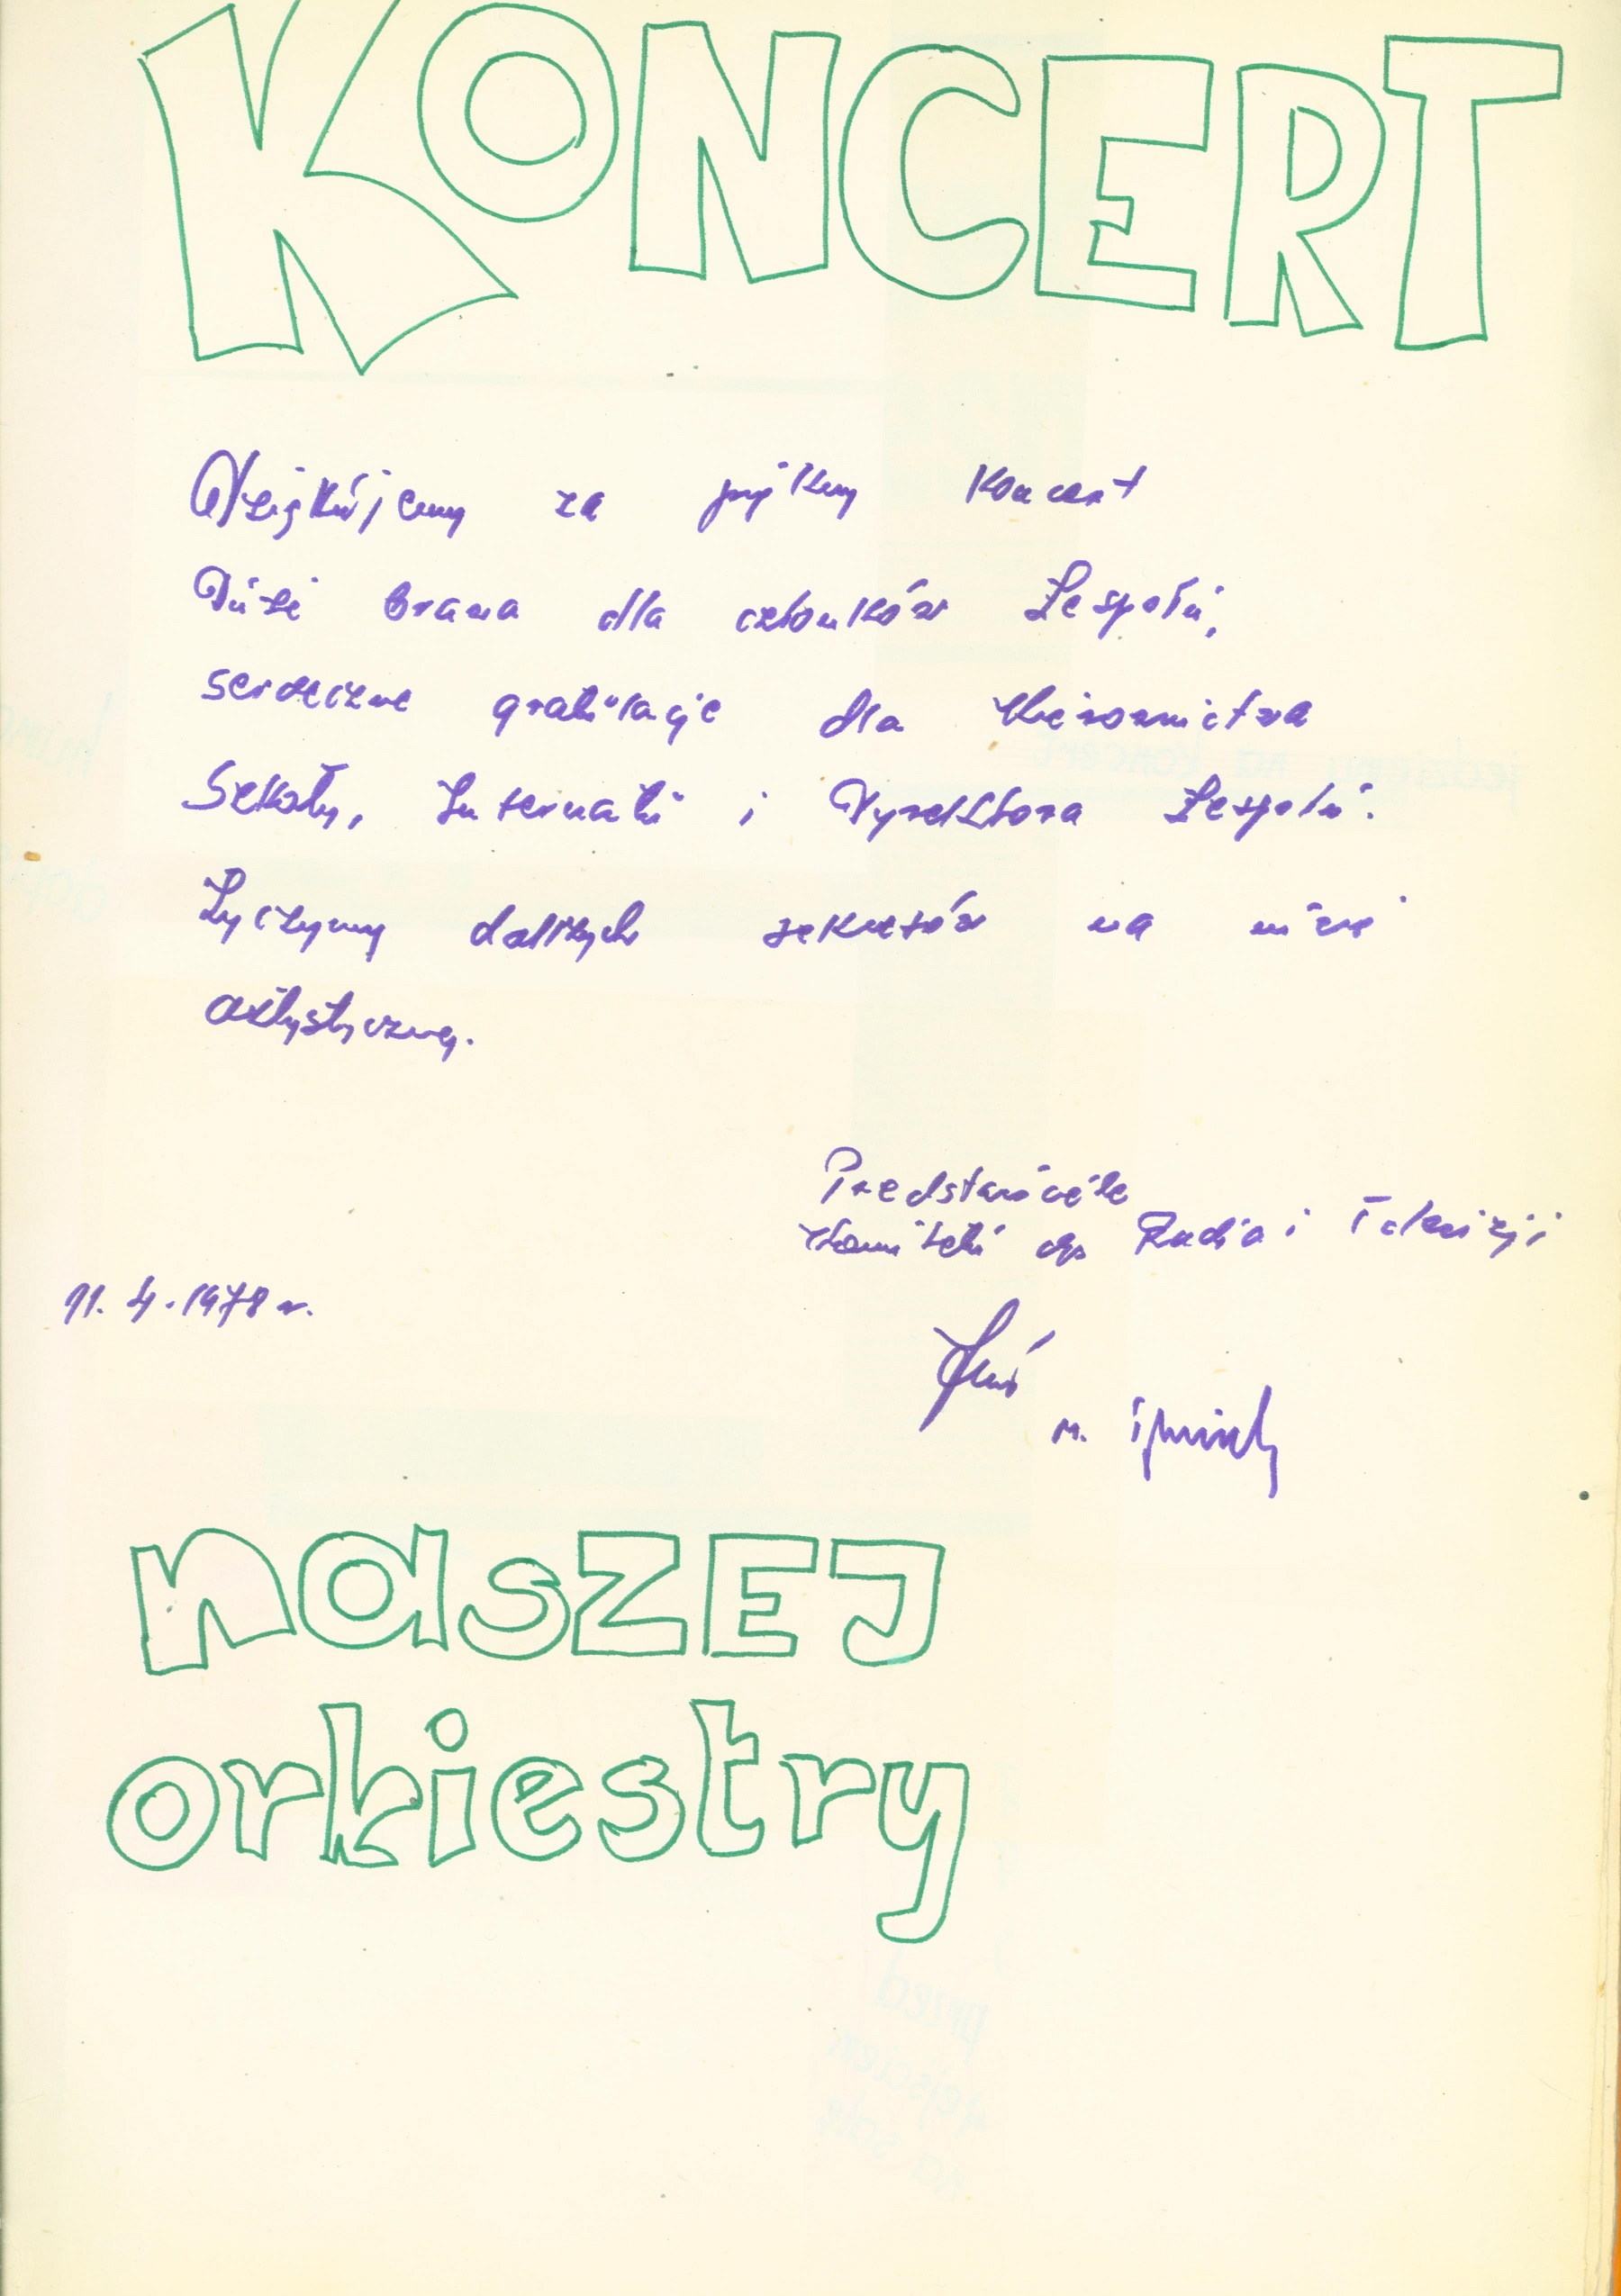 KONCERT
Dziękujemy za piękny koncert
Duże brawa dla członków Zespołu,
serdeczne gratulacje dla Kierownictwa
Szkoły, Internatu i Dyrektora Zespołu.
Życzymy dalszych na niwie
artystycznej.
Predstawiciele
Komitetu ds Radia i Telewizji
11. 4. 1978 r.
M.
naszej
orkiestry